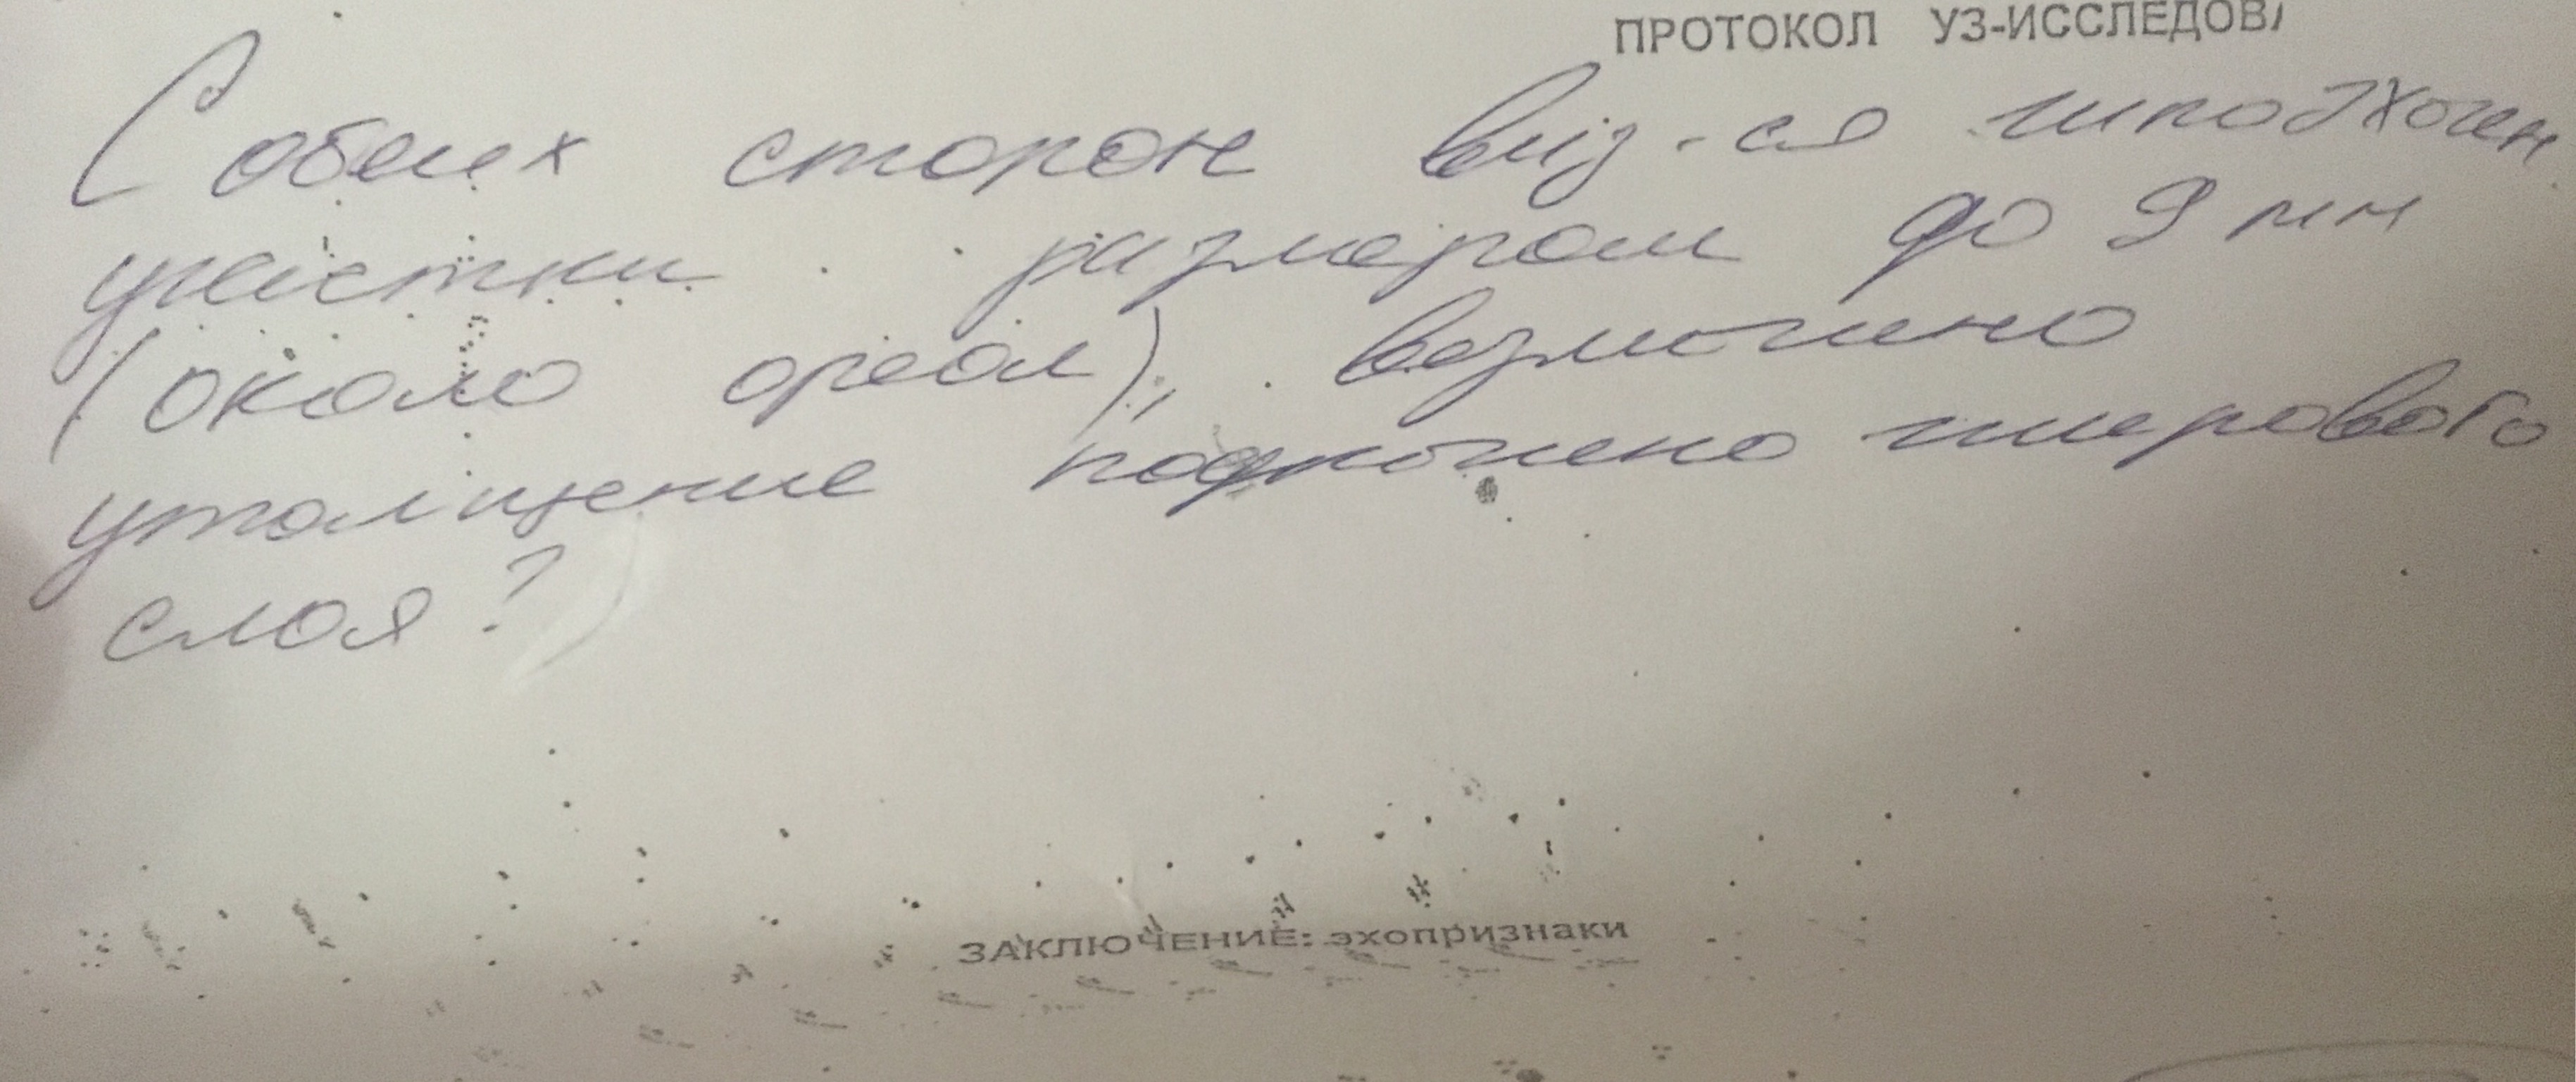 ПРОТОКОЛ УЗ-ИССЛЕДОВА
С обеих сторон виз-ся гипоэхоген.
участки размером до 9 мм
(около ореол), возможно
утолщение подкожно жирового
слоя?
ЗАКЛЮЧЕНИЕ: эхопризнаки